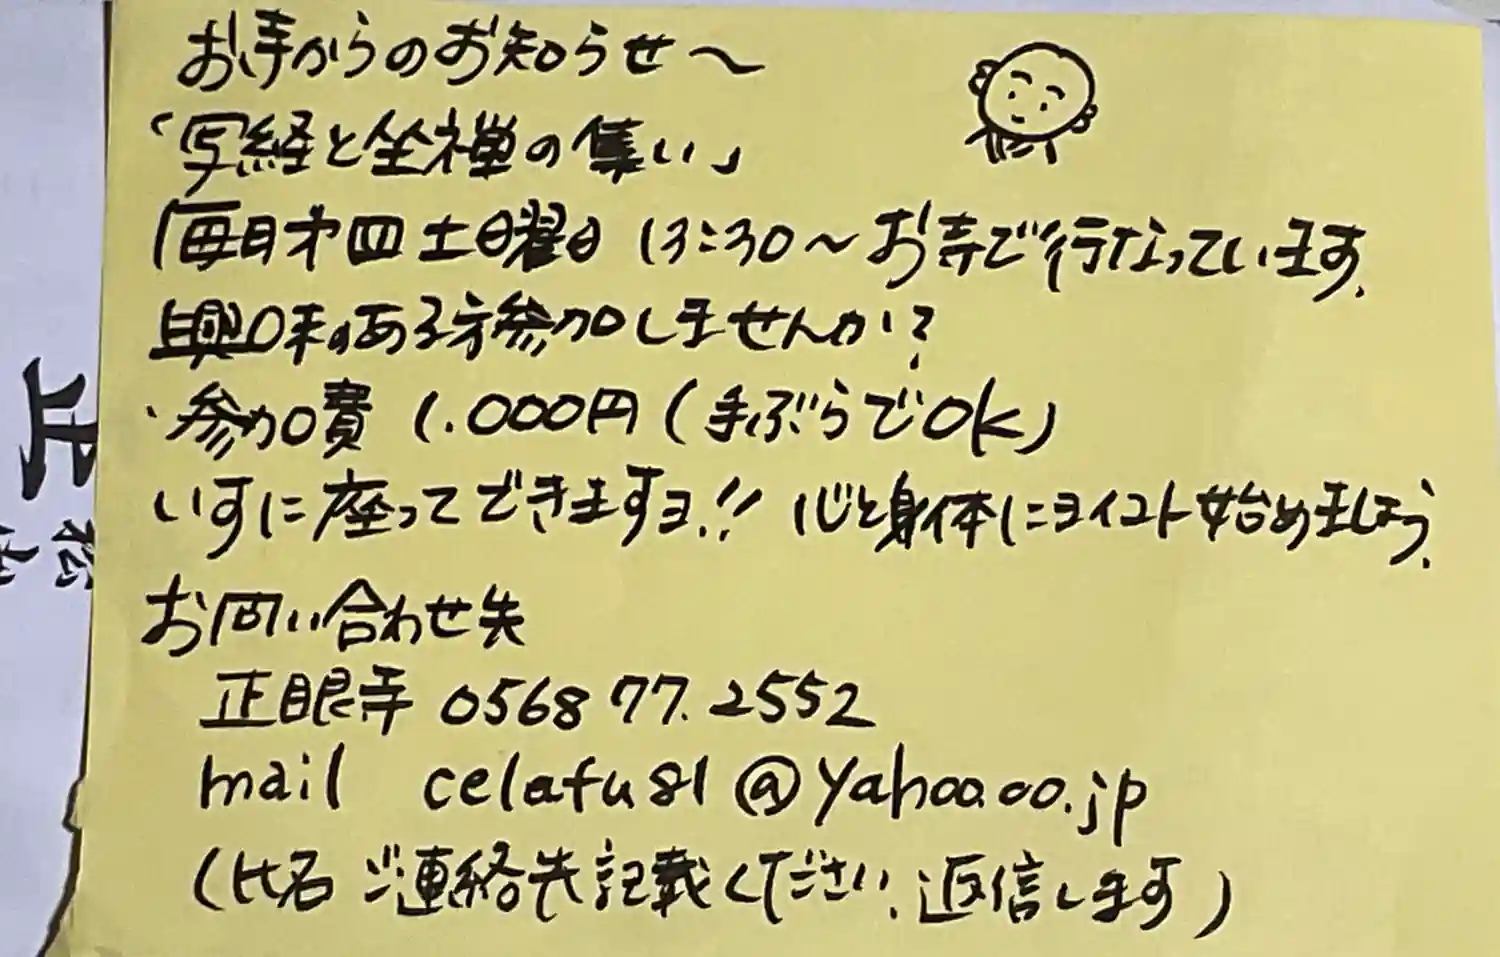 お寺からのお知らせ～
「写経と坐禅の集い」
毎月第四土曜日 13:30～お寺で行なっています.
興味のある方参加しませんか?
・参加費 1.000円(手ぶらでOK)
いすに座ってできますョ.!! 心と身体にヨイコト始めましょう.
お問い合わせ先
正眼寺 0568 77.2552
mail celafu81@yahoo.co.jp
(氏名 ご連絡先記載ください.返信します)
正
松
山